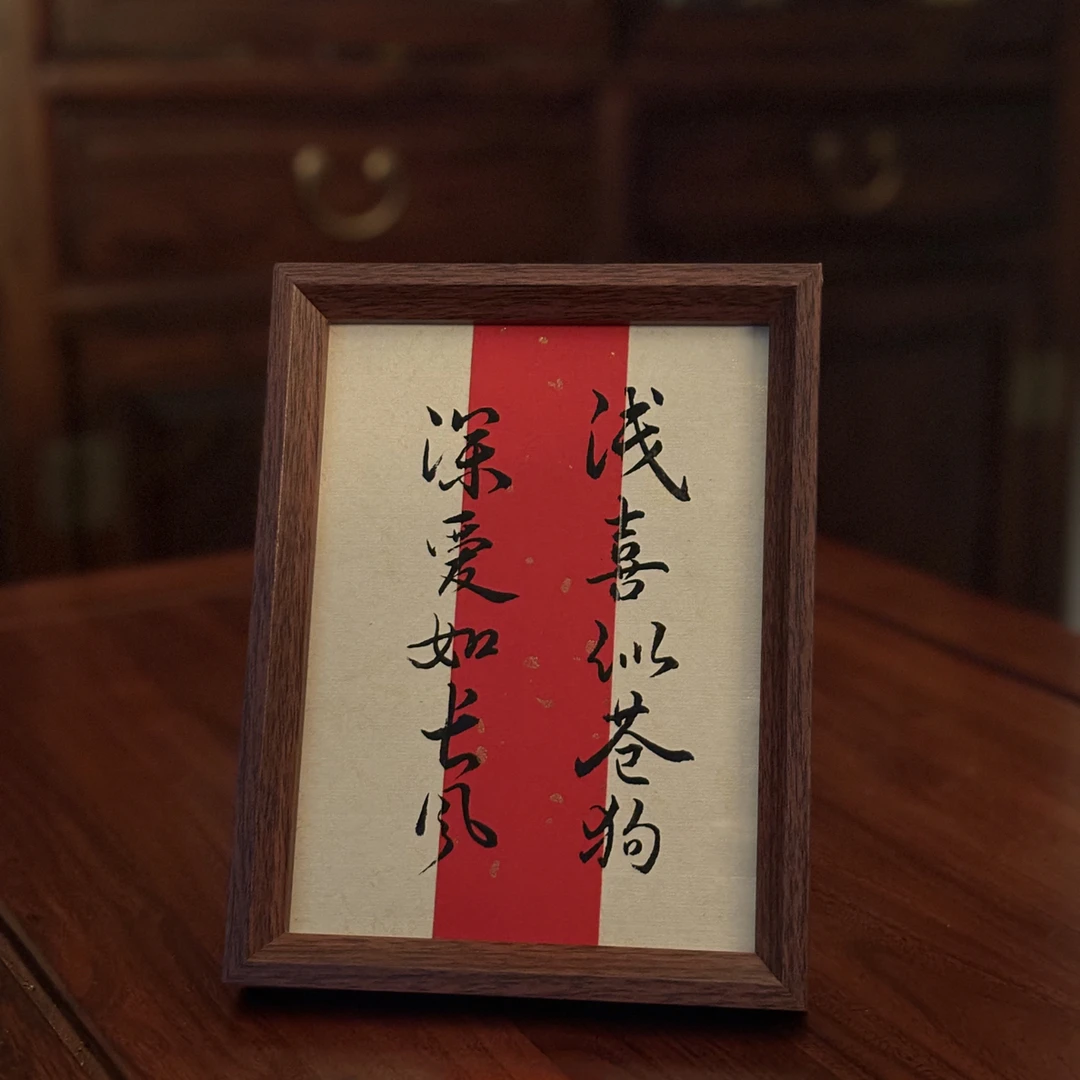 浅喜似苍狗
深爱如长风